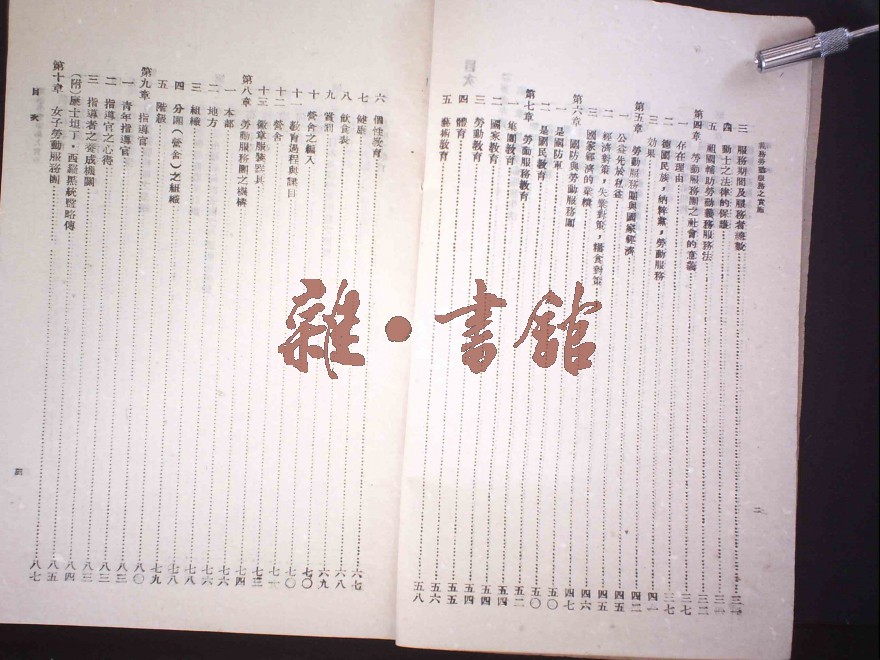 義務勞動服務之實施
三 服務期間及服務者總數 三一
四 勤士之法律的保護 三一
五 祖國輔助勞動義務服務法 三二
第四章 勞動服務團之社會的意義 三七
一 存在理由 三七
二 德國民族，納粹黨，勞動服務
三 效果 四一
第五章 勞動服務團與國家經濟 四二
一 公益先於私益 四五
二 經濟對策，失業對策，糧食對策 四五
三 國家經濟的業績 四六
第六章 國防與勞動服務團 四七
一 是國防軍 五〇
二 是國民教育 五〇
第七章 勞動服務教育 五二
一 集團教育 五四
二 國家教育 五四
三 勞動教育 五四
四 體育 五五
五 藝術教育 五六
五八
二
六 個性發育 六七
七 健康 六八
八 飲食表 六九
九 賞罰 七〇
十 營舍之編入 七〇
十一 教育過程與課目 七一
十二 營舍 七三
十三 徽章服裝器具 七四
第八章 勞動服務團之機構 七六
一 本部 七六
二 地方 七八
三 組織 七九
四 分團（營舍）之組織 八〇
五 階級 八三
第九章 指導官
一 青年指導官 八三
二 指導官之心得 八三
三 指導者之養成機關 八四
（附）歷士坦丁・西羅黑統監略傳 八五
第十章 女子勞動服務團 八七
目次
三
雜・書館